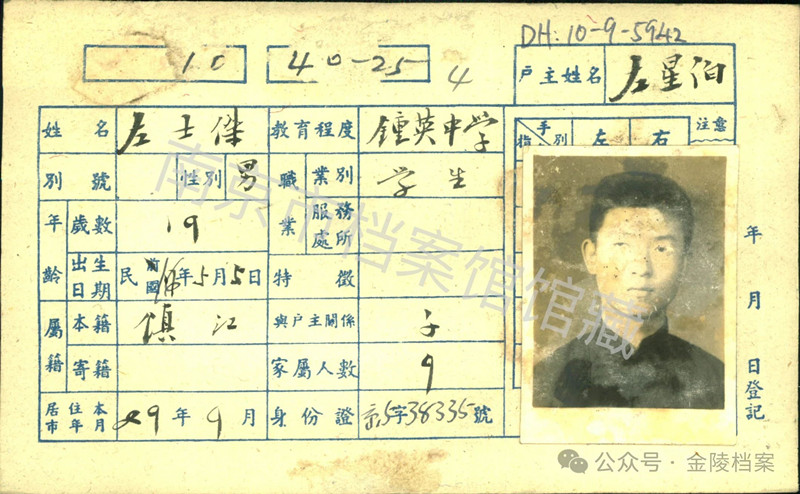 DH: 10-9-5942
10 40-25 4
戶主姓名 左星泊
姓名 左士傑 教育程度 鍾英中学
手別 指 左 右 注意
別號 性別 男 職業 業別 学生
年齡 歲數 19 服務處所
出生日期 民國前 年5月5日 特徵
屬籍 本籍 鎮江 與戶主關係 子
寄籍 家屬人數 9
居住本市年月 29年9月 身份證 京5字38335號
年 月 日登記
南京市档案馆馆藏
公众号·金陵档案